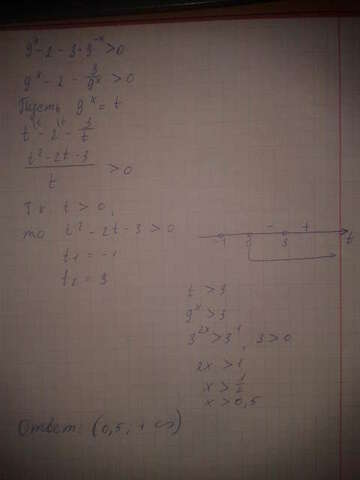 9ˣ - 2 - 3·9⁻ˣ > 0
9ˣ - 2 - 3/9ˣ > 0
Пусть 9ˣ = t
t - 2 - 3/t
(t² - 2t - 3)/t > 0
Т.к. t > 0,
то t² - 2t - 3 > 0
t₁ = -1
t₂ = 3
-1 0 - 3 + t
t > 3
9ˣ > 3
3²ˣ > 3¹, 3 > 0
2x > 1
x > 1/2
x > 0,5
Ответ: (0,5, +∞)